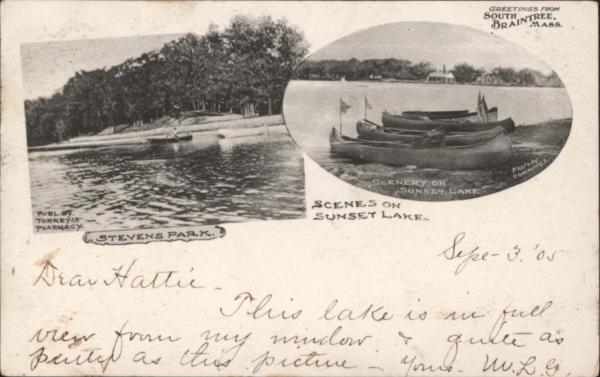 GREETINGS FROM
SOUTH BRAINTREE,
MASS.
PUBL. BY
TORREY'S
PHARMACY.
STEVENS PARK.
SCENERY ON
SUNSET LAKE.
PHOTO BY
SCENES ON
SUNSET LAKE.
Sep- 3. '05
Dear Hattie -
This lake is in full
view from my window & quite as
pretty as this picture - Yours - M. L. G.